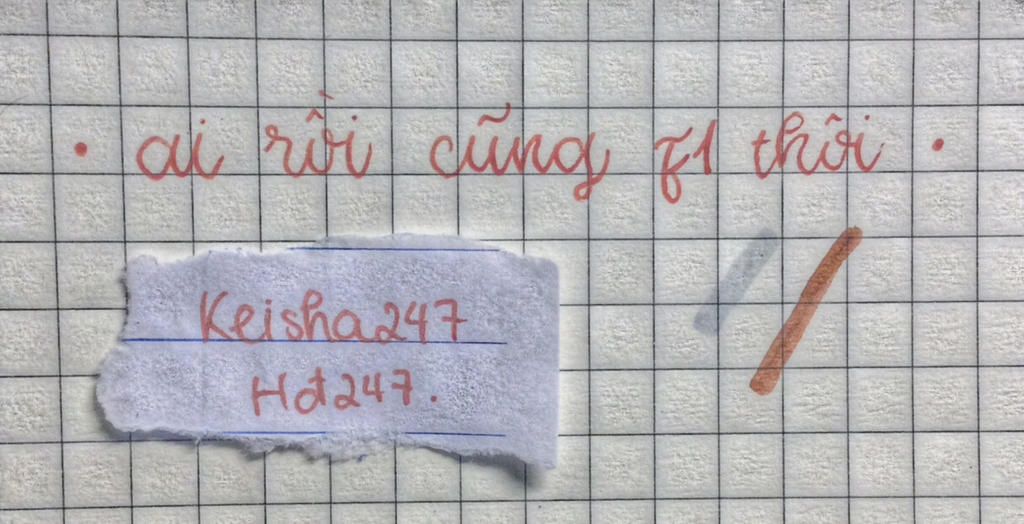 • ai rồi cũng f1 thôi •
Keisha247
Hđ247.